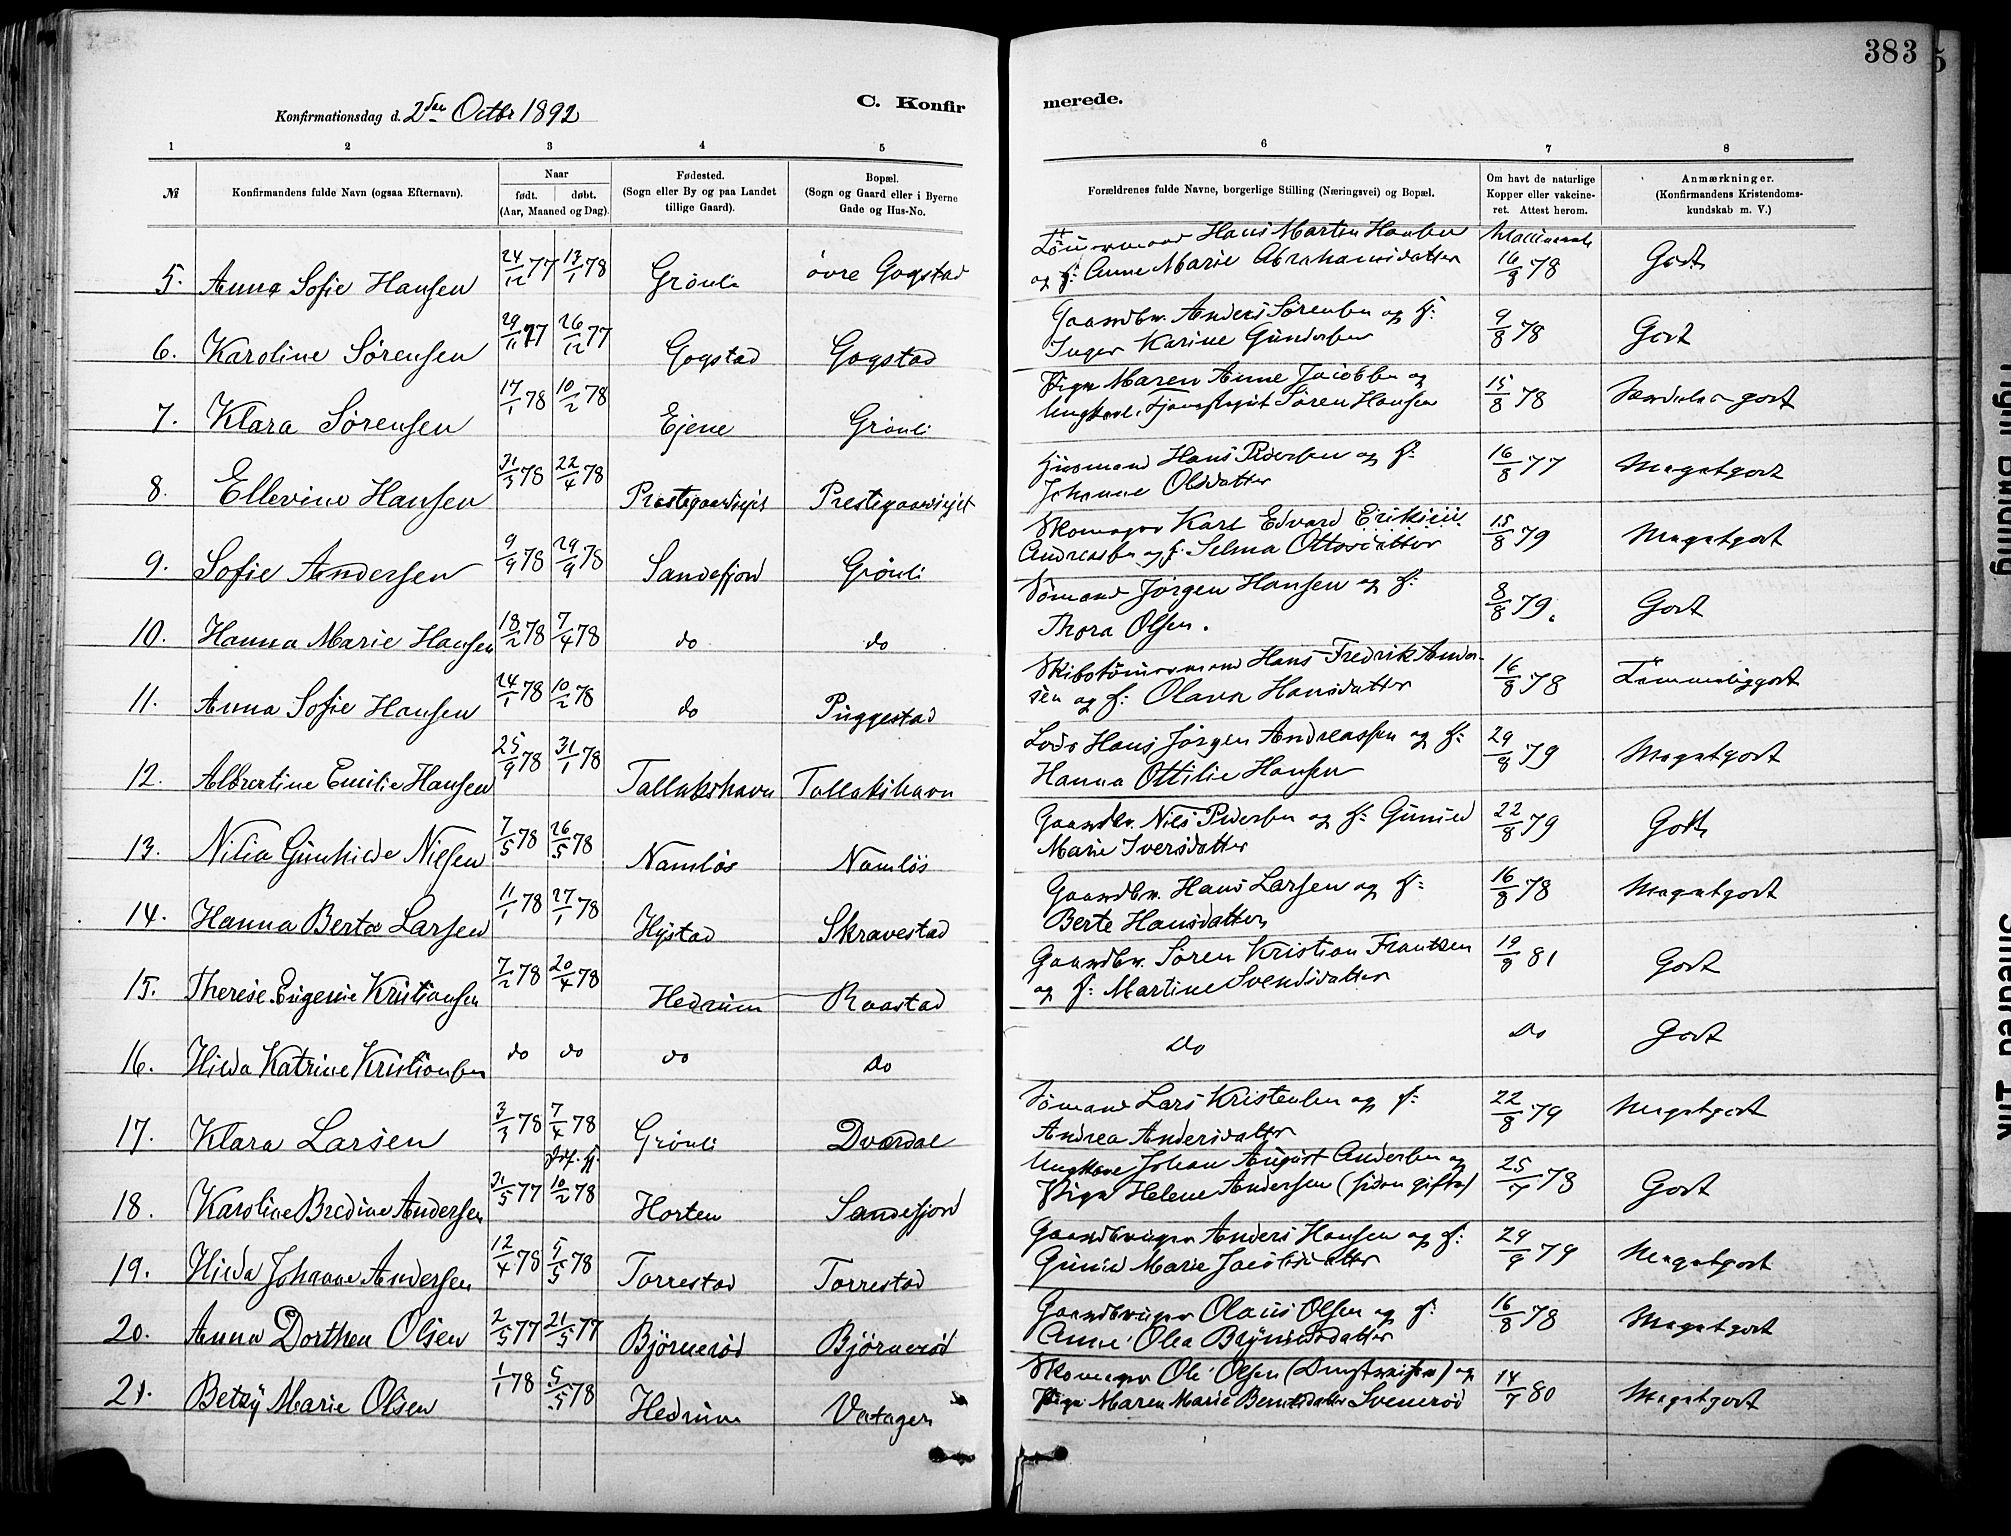 383
Konfirmationsdag d. 2den Octbr 1892
C. Konfirmerede.
1 2 3 4 5 6 7 8
№ Konfirmandens fulde Navn (ogsaa Efternavn). Naar født. døbt. (Aar, Maaned og Dag). Fødested. (Sogn eller By og paa Landet tillige Gaard). Bopæl. (Sogn og Gaard eller i Byerne Gade og Hus-No. Forældrenes fulde Navne, borgerlige Stilling (Næringsvei) og Bopæl. Om havt de naturlige Kopper eller vakcineret. Attest herom. Anmærkninger. (Konfirmandens Kristendomskundskab m. V.)
5. Anna Sofie Hansen 24/12 77 13/1 78 Grönli övre Gogstad Hans Martin Hansen og H: Anne Marie Abrahamsdatter 16/8 78 Godt
6. Karoline Sørensen 29/11 77 26/12 77 Gogstad Gogstad Gaardbr. Anders Sørensen og H: Inger Karine Gundersen 9/8 78 Godt
7. Klara Sørensen 17/1 78 10/2 78 Ejene Grönli Pige Maren Anne Jacobsen og Ungkarl Søren Hansen 15/8 78 Særdeles godt
8. Ellevine Hansen 31/3 78 22/4 78 Prestegaardsejet Prestegaardsejet Husmand Hans Pedersen og H: Johanne Olsdatter 16/8 77 Megetgodt
9. Sofie Andersen 9/9 78 29/9 78 Sandefjord Grönli Skomager Karl Edvard Eriksen Andreassen og H. Selma Ottosdatter 15/8 79 Megetgodt
10. Hanna Marie Hansen 18/2 78 7/4 78 do do Sömand Jörgen Hansen og H: Thora Olsen. 8/8 79. Godt
11. Anna Sofie Hansen 24/1 78 10/2 78 do Puggestad Skibstömmermand Hans Fredrik Andersen og H: Olava Hansdatter 16/8 78 Temmeliggodt
12. Albertine Emilie Hansen 25/9 78 31/1 78 Tallakshavn Tallakshavn Lods Hans Jörgen Andreassen og H: Hanna Ottilie Hansen 29/8 79 Megetgodt
13. Nilia Gunhilde Nielsen 7/5 78 26/5 78 Namlös Namlös Gaardbr. Niels Pedersen og H: Gunild Marie Iversdatter 22/8 79 Godt
14. Hanna Berta Larsen 11/1 78 27/1 78 Hystad Skravestad Gaardbr. Hans Larsen og H: Berte Hansdatter 16/8 78 Megetgodt
15. Therese Eugenie Kristiansen 7/2 78 20/4 78 Hedrum Raastad Gaardbr. Sören Kristian Frantzen og H: Martine Svendsdatter 19/8 81 Godt
16. Hilda Katrine Kristiansen do do do do do do Godt
17. Klara Larsen 3/3 78 7/4 78 Grönli Dverdal Sömand Lars Kristensen og H: Andrea Andersdatter 22/8 79 Megetgodt
18. Karoline Bredine Andersen 31/5 77 10/2 78 Horten Sandefjord Ungkarl Johan August Andersen og Pige Helene Andersen (siden gifte) 25/7 78 Godt
19. Hilda Johanne Andersen 12/4 78 5/5 78 Torrestad Torrestad Gaardbruger Anders Hansen og H: Gunild Marie Jacobsdatter 29/9 79 Megetgodt
20. Anna Dorthea Olsen 2/5 77 21/5 77 Björneröd Björneröd Gaardbruger Olaus Olsen og H: Anne Olea Brynildsdatter 16/8 78 Megetgodt
21. Betzy Marie Olsen 1/1 78 5/5 78 Hedrum Skomager Ole Olsen og Pige Maren Marie Sveneröd 14/7 80 Megetgodt